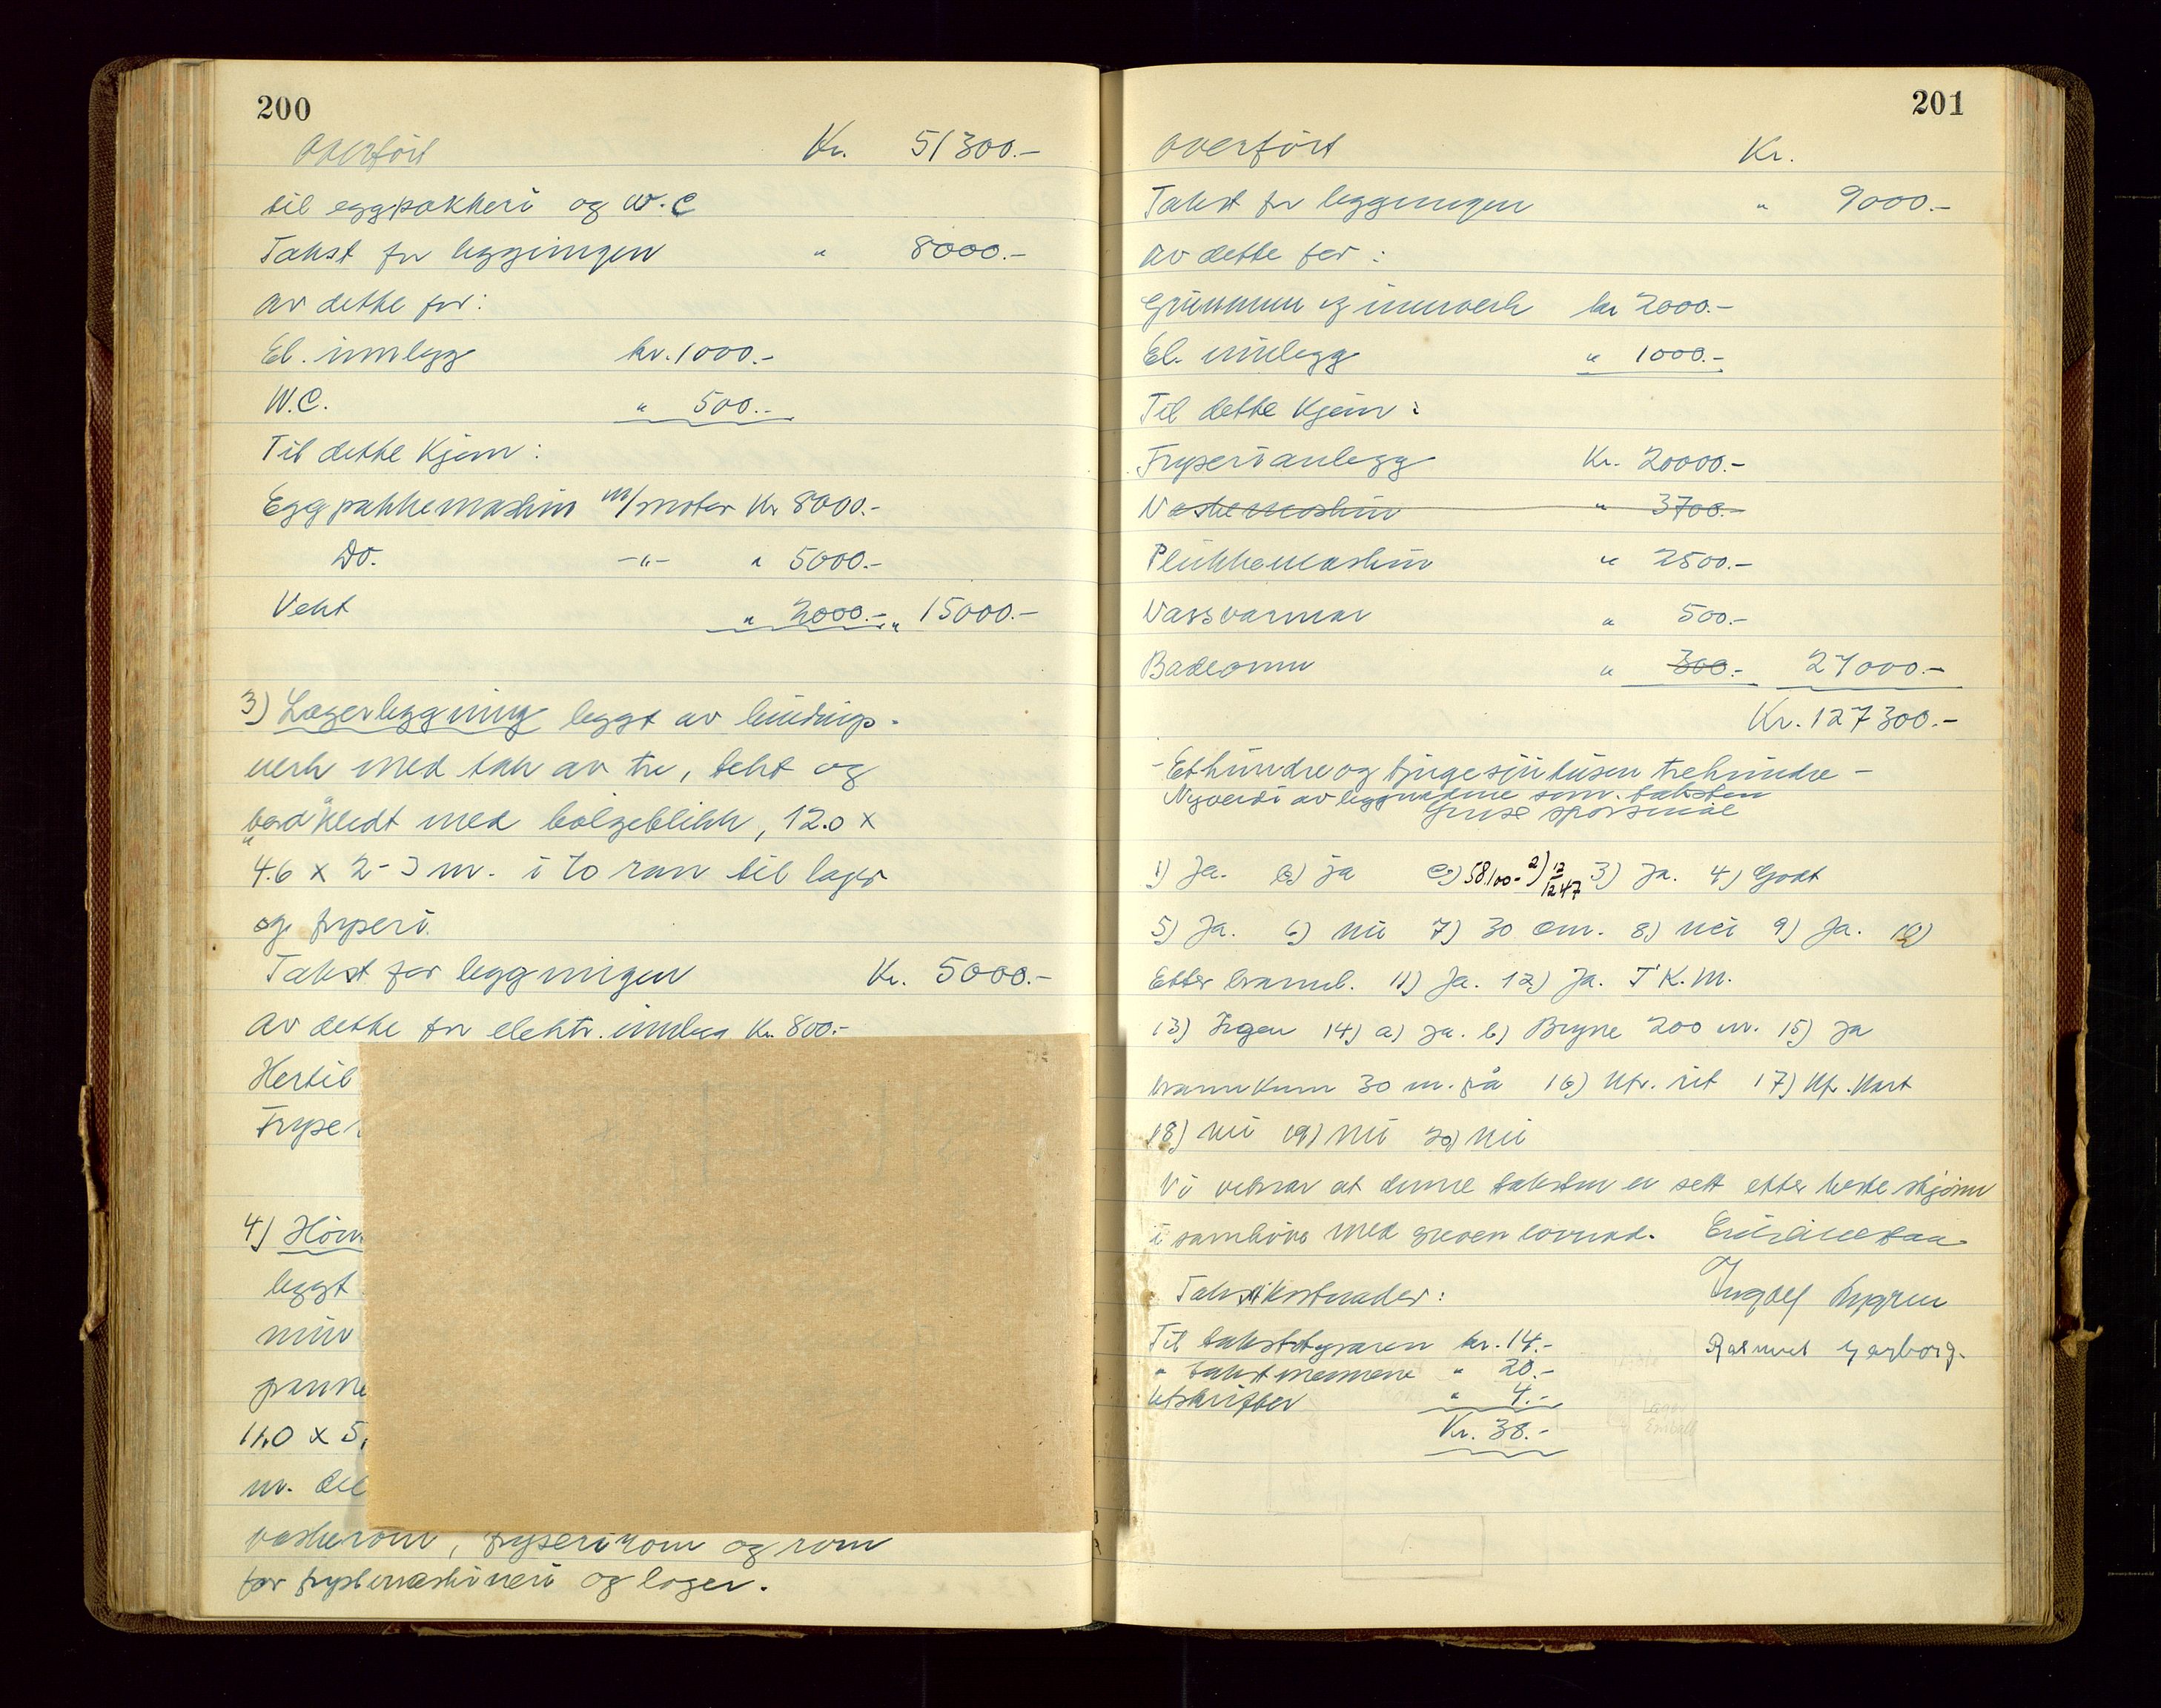 200
Overført Kr. 51300.-
til eggpakkeri og W.C
Takst for byggningen " 8000.-
av dette for:
El. innlegg kr. 1000.-
W.C. " 500.-
Til dette kjem:
Eggpakkemaskin m/motor Kr 8000.-
Do. -"- " 5000.-
Vekt " 2000.- " 15000.-
3) Lagerbyggning bygt av bindings-
verk med tak av tre, tekt og
kledt med bølgeblikk, 12.0 x
4.6 x 2-3 m. i to rom til lager
og fryseri.
Takst for byggningen Kr. 5000.-
Av dette for elektr. innlegg Kr. 800.-
Hertil
Fryseri
4) Høns
bygt
min
panne
11.0 x 5,
m. del
vaskerom, fryserirom og rom
for frysemaskineri og lager.
201
Overført Kr.
Takst for byggningen " 9000.-
Av dette for:
Grunnmur og murverk kr 2000.-
El. innlegg " 1000.-
Til dette kjem:
Fryserianlegg Kr. 20000.-
Vaskemaskin " 3700.-
Plukkemaskin " 2500.-
Vassvarmar " 500.-
Badeomn " 300.- 27000.-
Kr. 127300.-
- Ethundreogtjugesjutusen trehundre -
Nyverdi av byggnadene som taksten
Ymse spørsmål
1) Ja. b) ja c) 58.100.- 2) 12/12 47 3) Ja. 4) Godt
5) Ja. 6) nei 7) 30 cm. 8) nei 9) Ja. 10)
Etter brannb. 11) Ja. 12) Ja. T K.M.
13) Ingen 14) a) ja. b) Bryne 200 m. 15) ja
brannkum 30 m. frå 16) Upr. rit 17) Upr. kart
18) nei 19) nei 20) nei
Vi vitnar at denne taksten er sett etter beste skjønn
i samhøve med greven lovnad.
Ingolf Rygren
Takstkostnader:
Til takststyraren kr. 14.- Rasmus Garborg.
" takstmennene " 20.-
Utskrifter " 4.-
Kr. 38.-